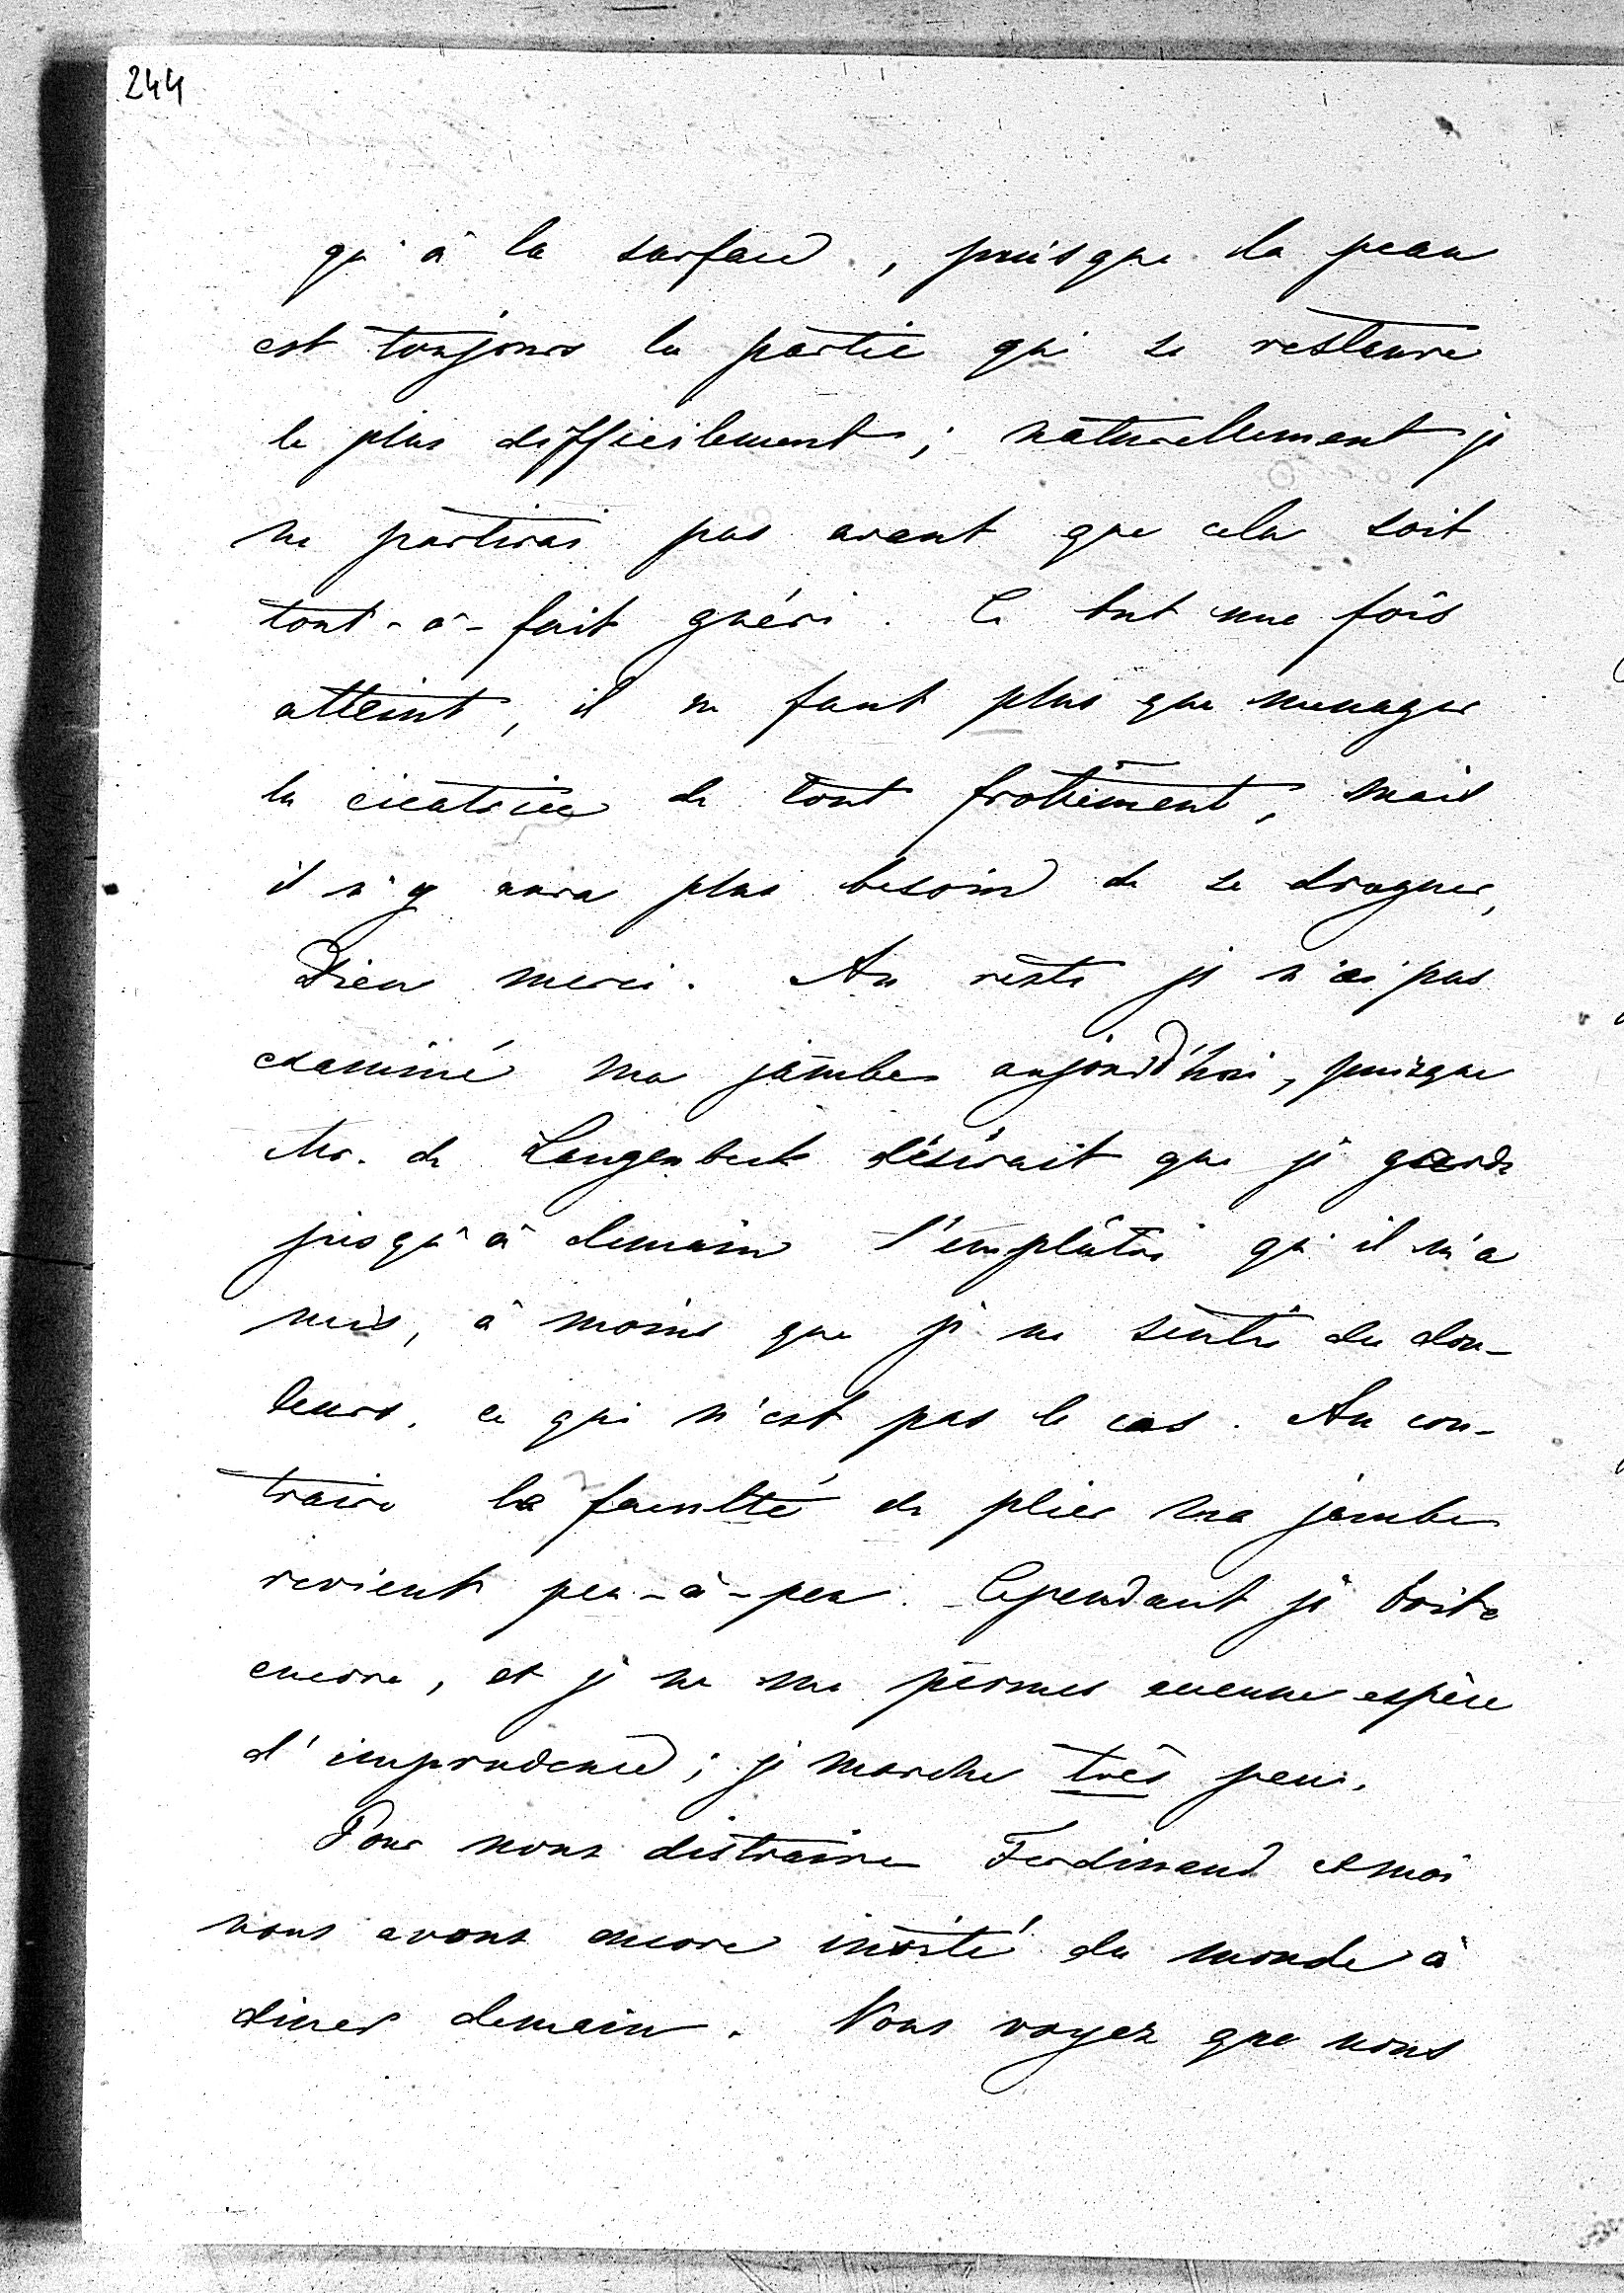 244
qu'à la surface, puisque la peau
est toujours la partie qui se restaure
le plus difficilement; naturellement je
ne partirai pas avant que cela soit
tout-à-fait guéri. Ce but une fois
atteint, il ne faut plus que menager
la cicatrice de tout frottement, mais
il n'y aura plus besoin de se droguer,
Dieu merci. Au reste je n'ai pas
examiné ma jambe aujourd'hui, puisque
Mr. de Langenbeck désirait que je garde
jusqu'à demain l'emplâtre qu'il m'a
mis, à moins que je ne sente des dou-
leurs, ce qui n'est pas le cas. Au con-
traire la faculté de plier ma jambe
revient peu-à-peu. Cependant je boite
encore, et je ne me permes aucune espèce
d'imprudence; je marche très peu.
Pour nous distraire Ferdinand et moi
nous avons encore invité du monde à
diner demain. Vous voyez que nous